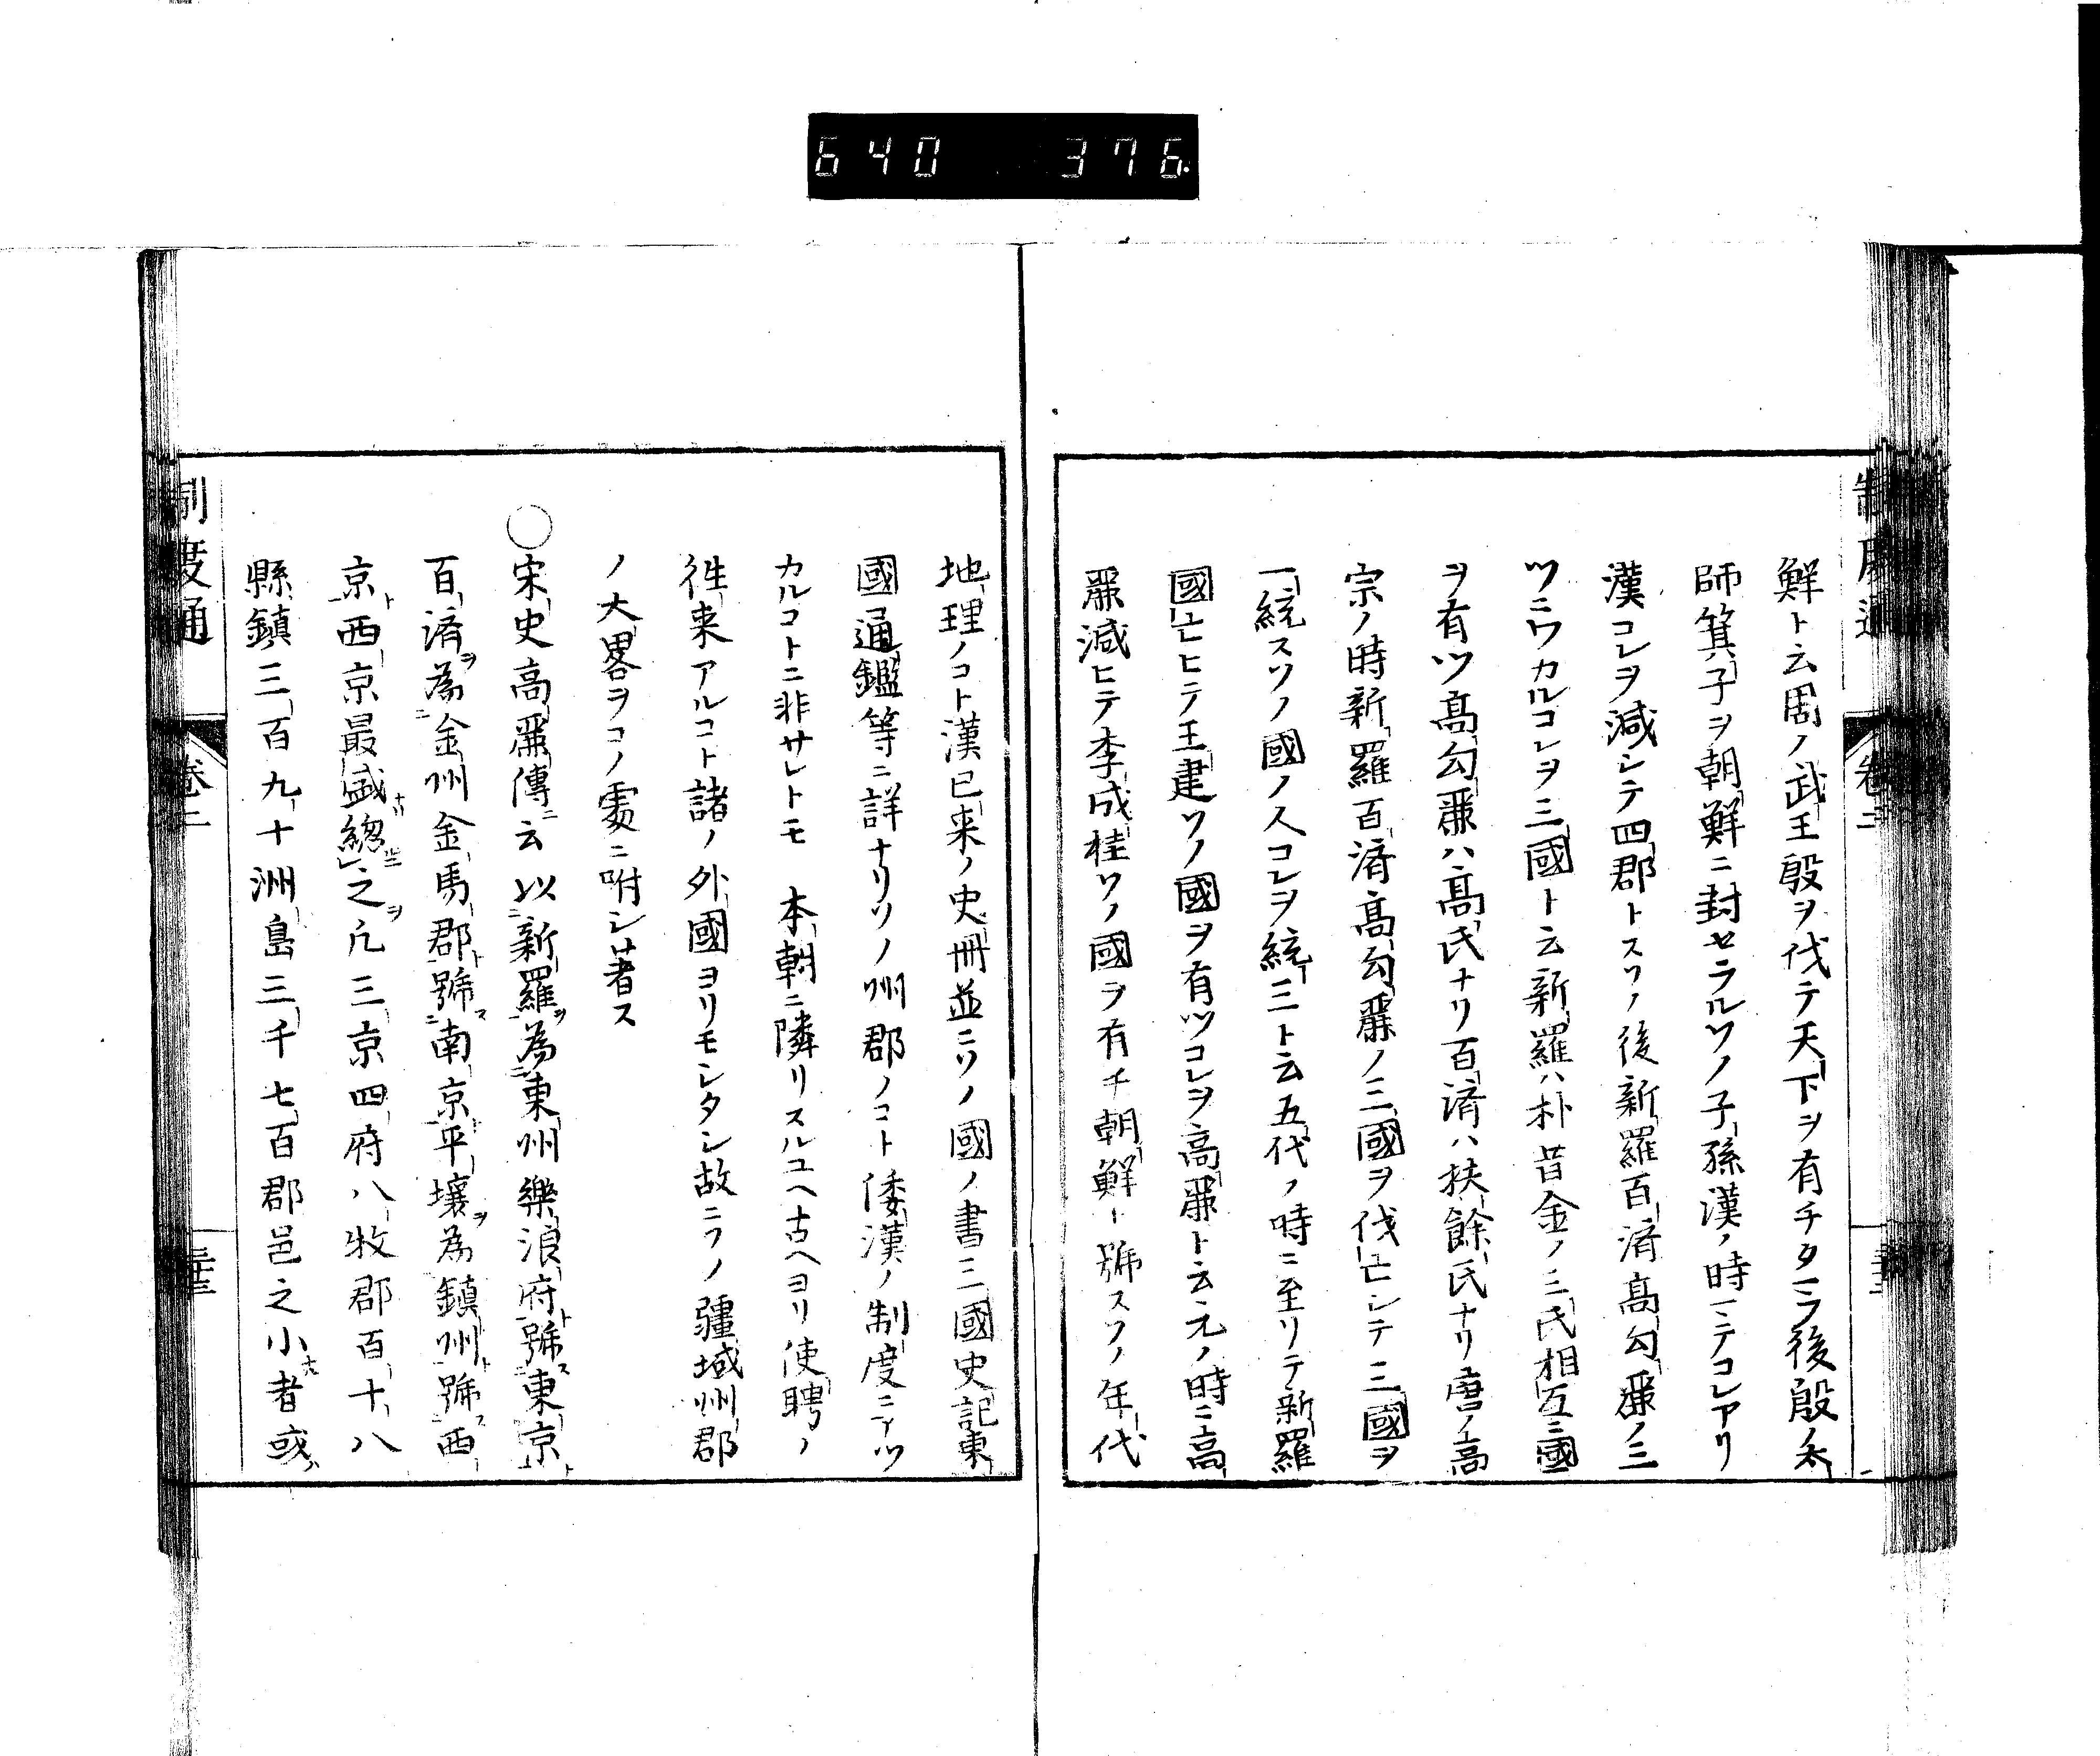 640 376
鮮ト云周ノ武王殷ヲ伐テ天下ヲ有チタマフ後殷ノ太
師箕子ヲ朝鮮ニ封セラルソノ子孫漢ノ時ニテコレアリ
漢コレヲ滅シテ四郡トスソノ後新羅百済高勾麗ノ三
ツニワカルコレヲ三國ト云新羅ハ朴昔金ノ三氏相互ニ國
ヲ有ツ高勾麗ハ高氏ナリ百済ハ扶餘氏ナリ唐ノ高
宗ノ時新羅百済高勾麗ノ三國ヲ伐亡シテ三國ヲ
一統スソノ國ノ人コレヲ統三ト云五代ノ時ニ至リテ新羅
國亡ヒテ王建ソノ國ヲ有ツコレヲ高麗ト云元ノ時ニ高
麗滅ヒテ李成桂ソノ國ヲ有チ朝鮮ト號スソノ年代
地理ノコト漢已来ノ史冊並ニソノ國ノ書三國史記東
國通鑑等ニ詳ナリソノ州郡ノコト倭漢ノ制度ニアツ
カルコトニ非サレトモ 本朝ニ隣リスルユヘ古ヘヨリ使聘ノ
徃来アルコト諸ノ外國ヨリモシタシ故ニソノ疆域州郡
ノ大畧ヲコノ處ニ咐シ著ス
○宋史高麗傳ニ云以新羅ヲ為東州樂浪府ト號ス東京ト
百済ヲ為金州金馬郡ト號ス南京ト平壤ヲ為鎮州ト號ス西
京ト西京最盛ナリ總之ヲ凢三京四府八牧郡百十八
縣鎮三百九十洲島三千七百郡邑之小者或ハ
制度通 卷二